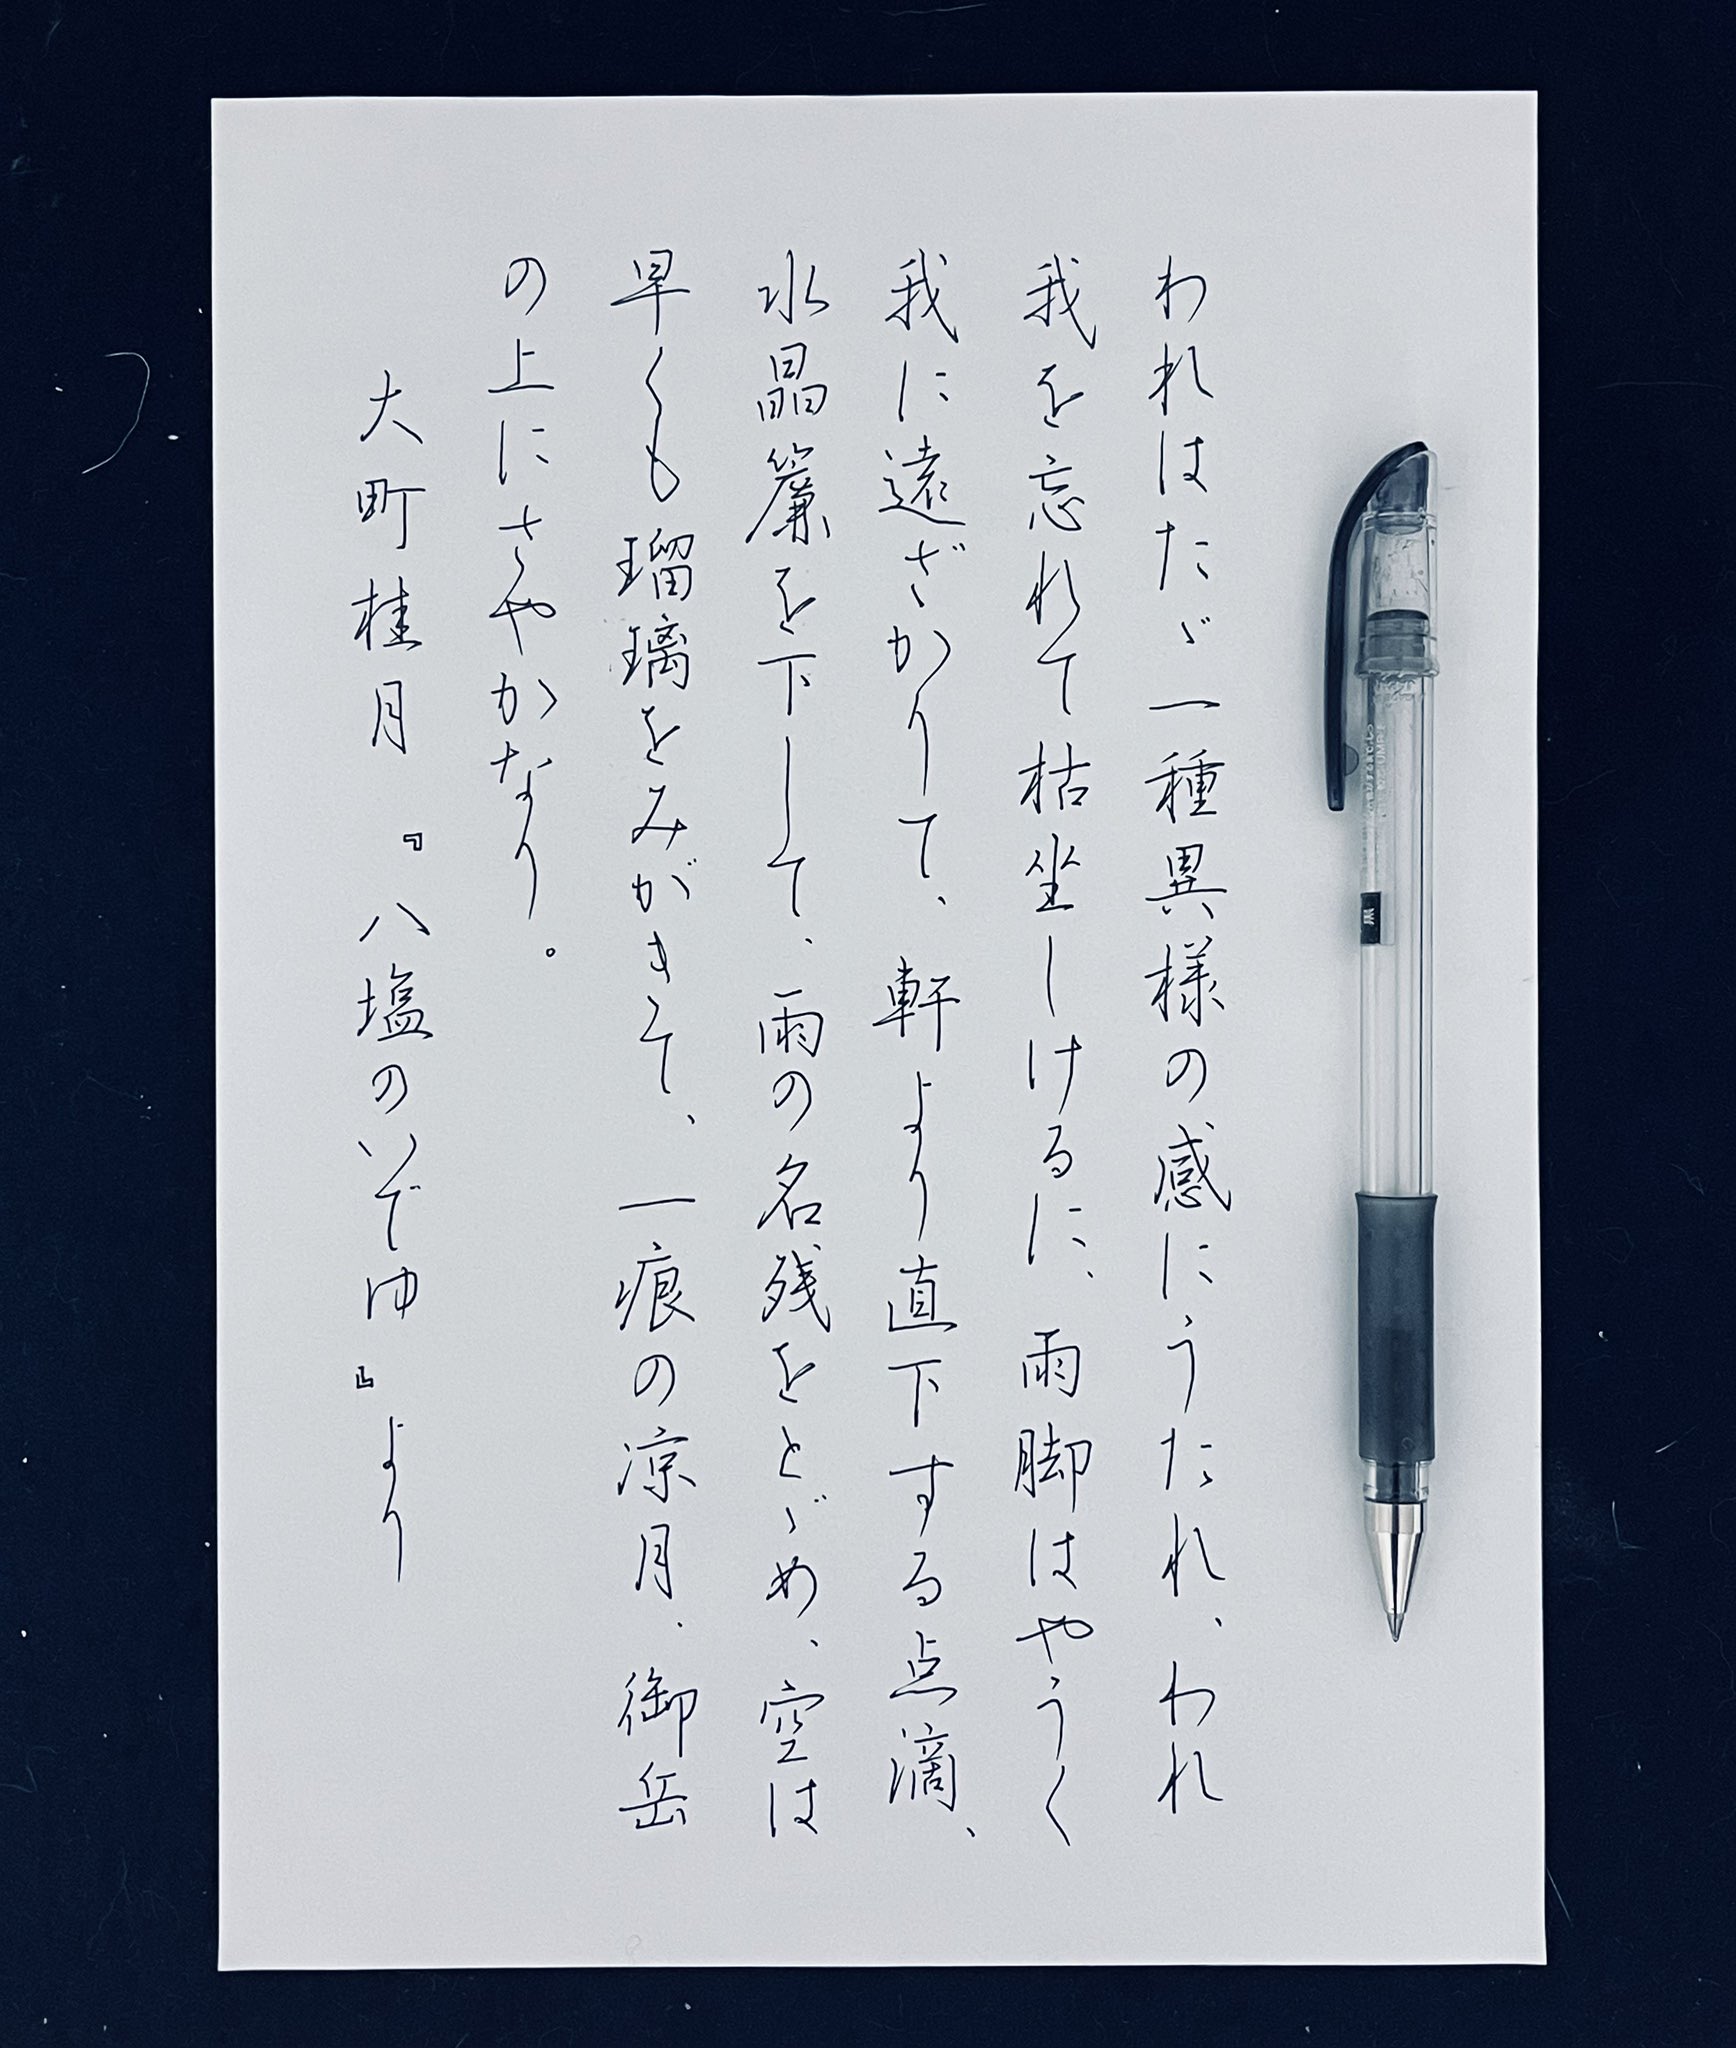 われはたゞ一種異様の感にうたれ、われ
我を忘れて枯坐しけるに、雨脚はやうく
我に遠ざかりて、軒より直下する点滴、
水晶簾を下して、雨の名残をとゞめ、空は
早くも瑠璃をみがきて、一痕の凉月、御岳
の上にさやかなり。
大町桂月『八塩のいでゆ』より